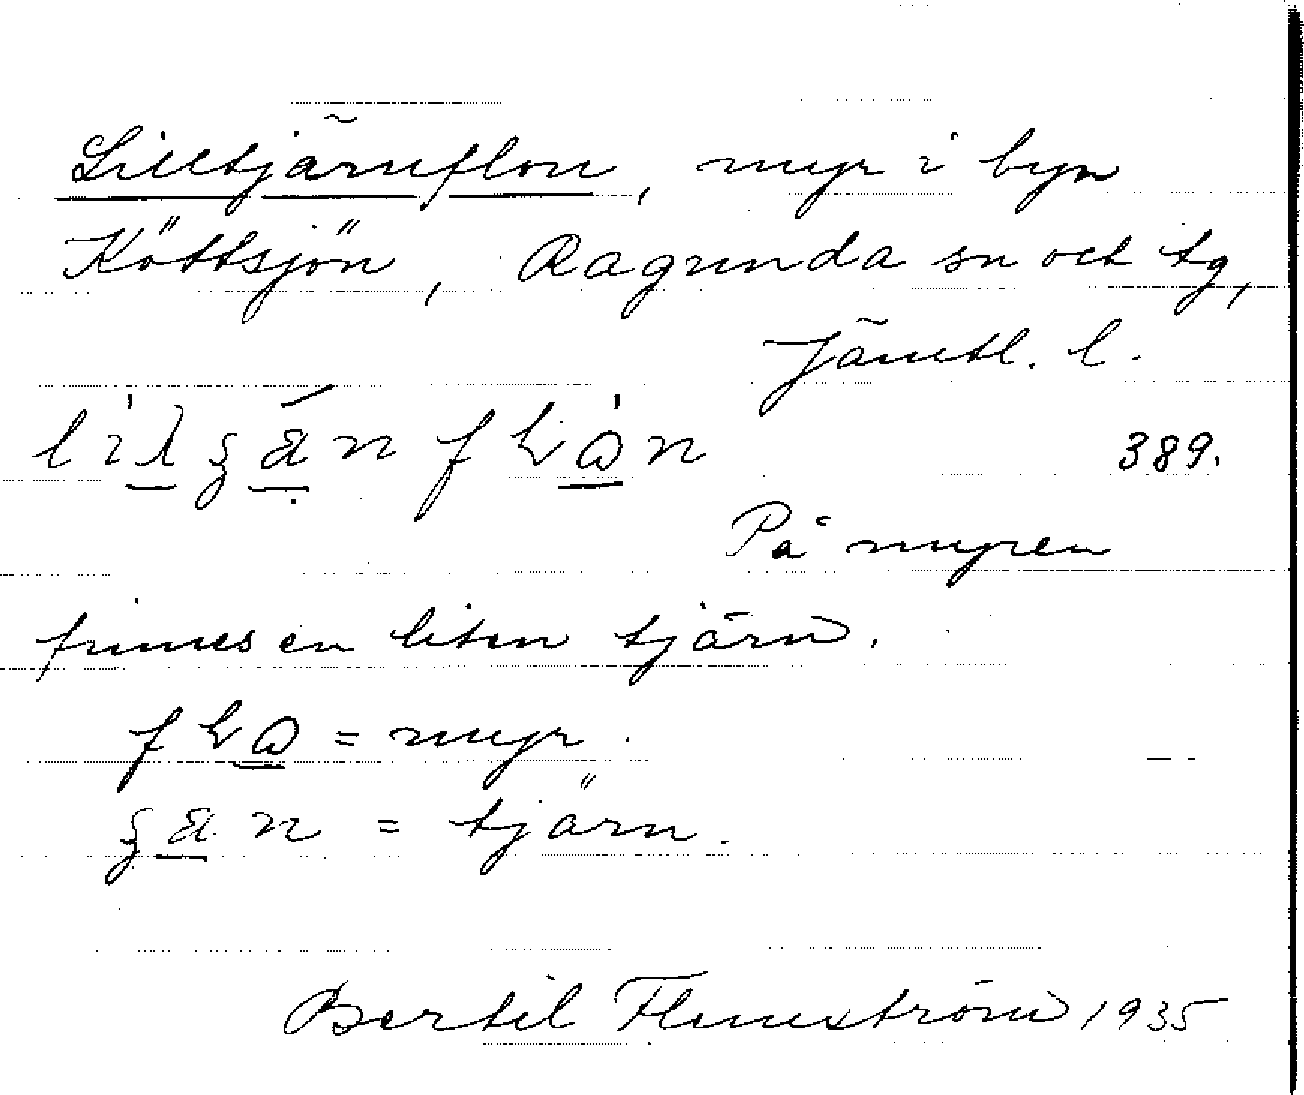 Lilltjärnflon, myr i byn
Köttsjön, Ragunda sn och tg,
Jämtl. l.
389.
På myren
finnes en liten tjärn.
= myr.
= tjärn.
Bertil Flemström 1935